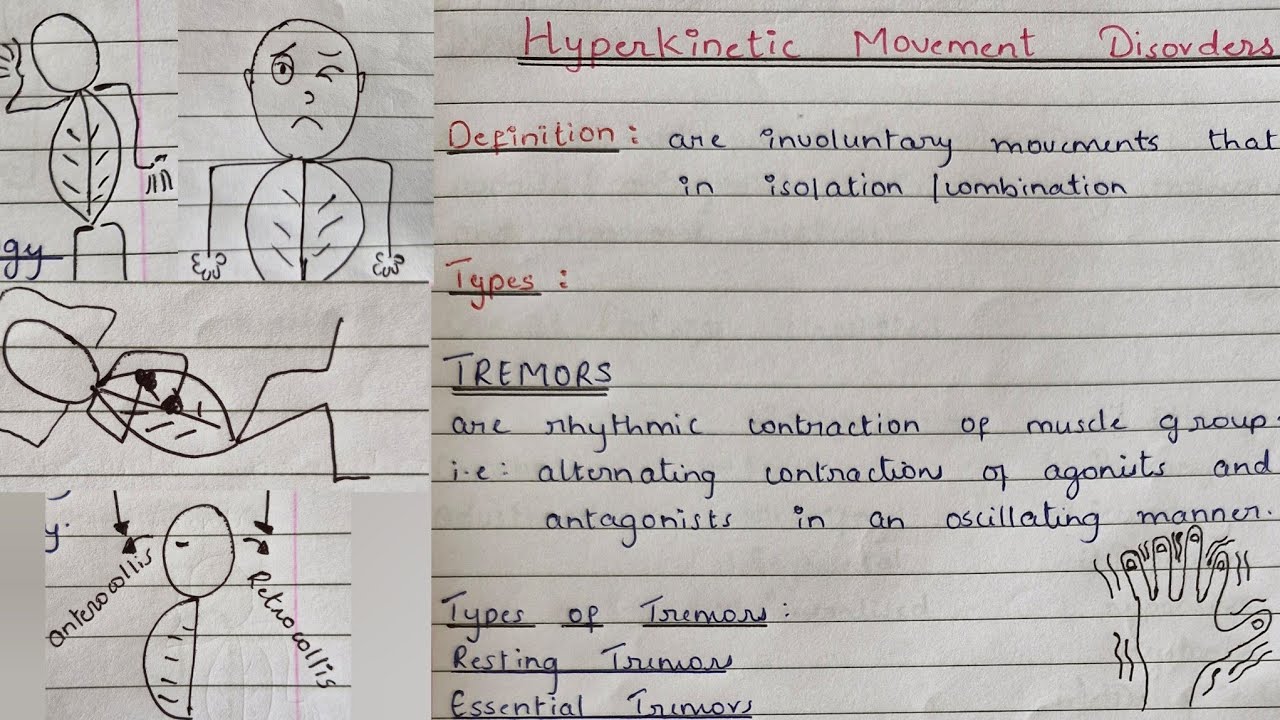 Hyperkinetic Movement Disorders
Definition: are involuntary movements that
in isolation /combination
Types :
TREMORS
are rhythmic contraction of muscle group.
i.e: alternating contraction of agonists and
antagonists in an oscillating manner.
Types of Tremors:
Resting Tremors
Essential Tremors
gy
y.
anterocollis
Retrocollis